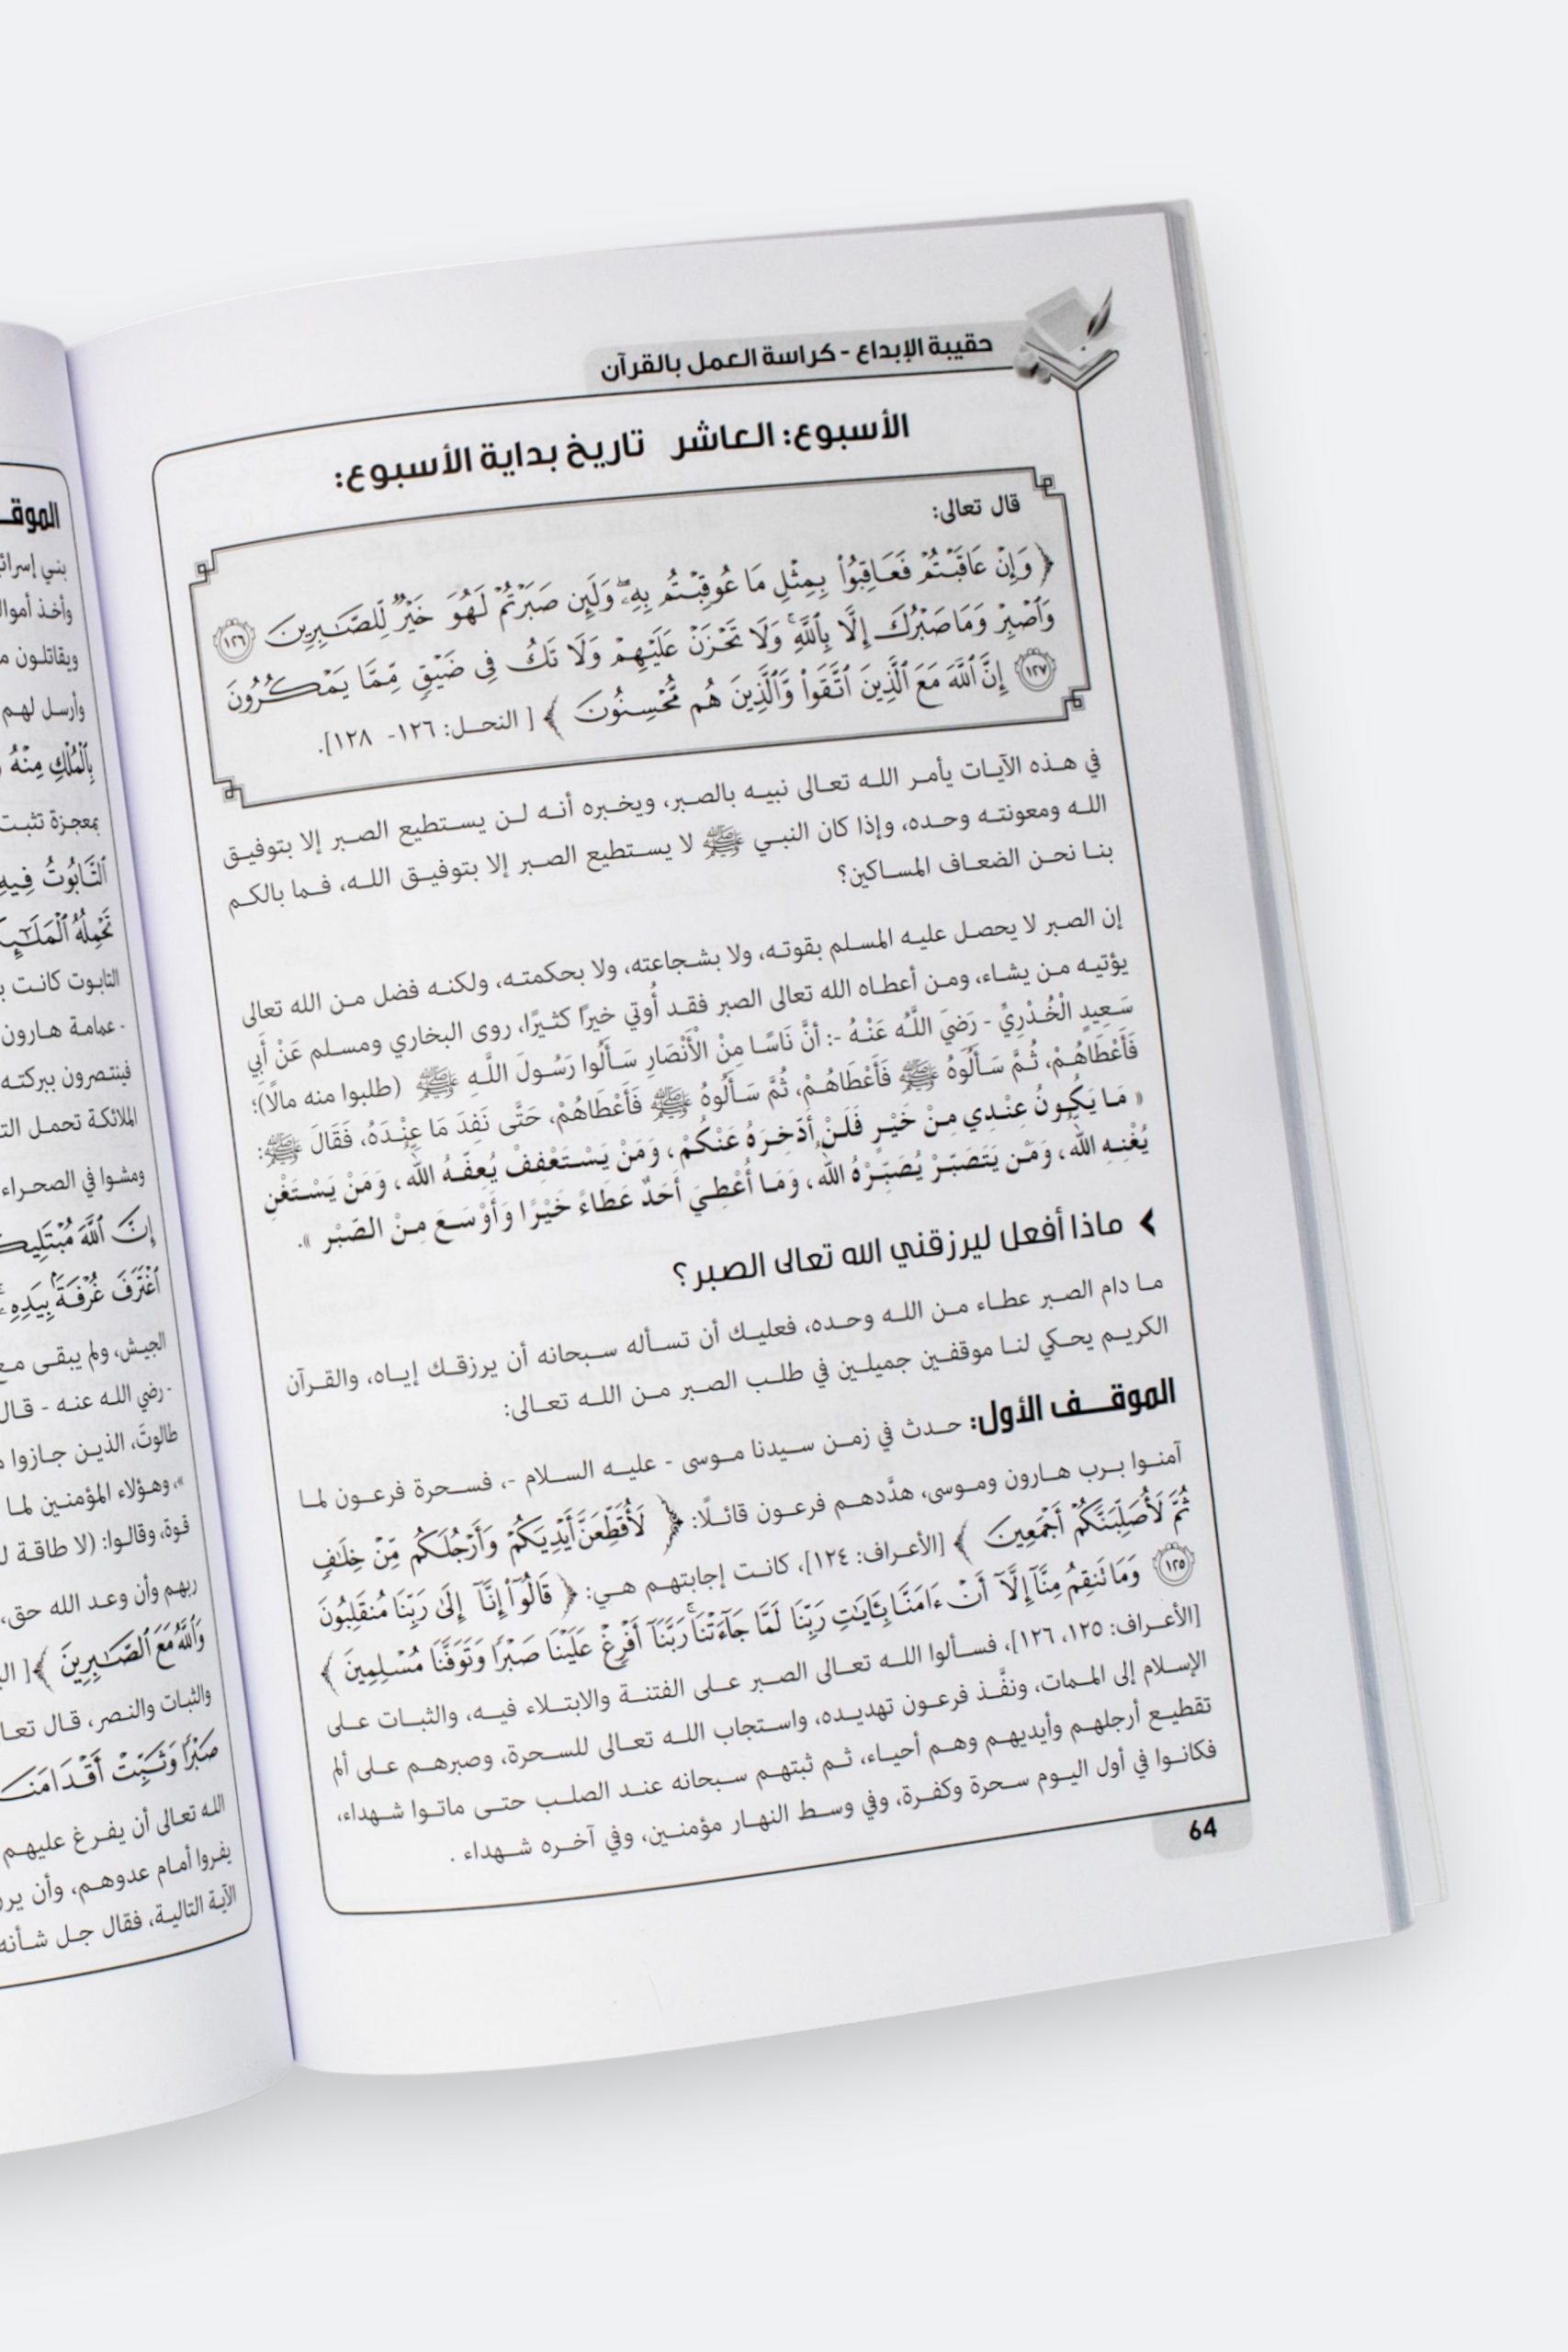 حقيبة الإبداع - كراسة العمل بالقرآن
الأسبوع: العاشر تاريخ بداية الأسبوع:
قال تعالى:
﴿ وَإِنْ عَاقَبْتُمْ فَعَاقِبُوا۟ بِمِثْلِ مَا عُوقِبْتُم بِهِۦ ۖ وَلَئِن صَبَرْتُمْ لَهُوَ خَيْرٌ لِّلصَّـٰبِرِينَ ١٢٦
وَٱصْبِرْ وَمَا صَبْرُكَ إِلَّا بِٱللَّهِ ۚ وَلَا تَحْزَنْ عَلَيْهِمْ وَلَا تَكُ فِى ضَيْقٍ مِّمَّا يَمْكُرُونَ
١٢٧ إِنَّ ٱللَّهَ مَعَ ٱلَّذِينَ ٱتَّقَوا۟ وَّٱلَّذِينَ هُم مُّحْسِنُونَ ﴾ [ النحل: ١٢٦- ١٢٨].
في هذه الآيات يأمر الله تعالى نبيه بالصبر، ويخبره أنه لن يستطيع الصبر إلا بتوفيق
الله ومعونته وحده، وإذا كان النبي ﷺ لا يستطيع الصبر إلا بتوفيق الله، فما بالكم
بنا نحن الضعاف المساكين؟
إن الصبر لا يحصل عليه المسلم بقوته، ولا بشجاعته، ولا بحكمته، ولكنه فضل من الله تعالى
يؤتيه من يشاء، ومن أعطاه الله تعالى الصبر فقد أُوتي خيرًا كثيرًا، روى البخاري ومسلم عَنْ أَبِي
سَعِيدٍ الْخُدْرِيِّ - رَضِيَ اللَّهُ عَنْهُ -: أنَّ نَاسًا مِنْ الْأَنْصَارِ سَأَلُوا رَسُولَ اللَّهِ ﷺ (طلبوا منه مالًا)؛
فَأَعْطَاهُمْ، ثُمَّ سَأَلُوَهُ ﷺ فَأَعْطَاهُمْ، ثُمَّ سَأَلُوهُ ﷺ فَأَعْطَاهُمْ، حَتَّى نَفِدَ مَا عِنْدَهُ، فَقَالَ ﷺ:
« مَا يَكُونُ عِنْدِي مِنْ خَيْرٍ فَلَنْ أَدَّخِرَهُ عَنْكُمْ، وَمَنْ يَسْتَعْفِفْ يُعِفَّهُ اللهُ، وَمَنْ يَسْتَغْنِ
يُغْنِهِ اللهُ، وَمَنْ يَتَصَبَّرْ يُصَبِّرْهُ اللهُ، وَمَا أُعْطِيَ أَحَدٌ عَطَاءً خَيْرًا وَأَوْسَعَ مِنْ الصَّبْرِ ».
ماذا أفعل ليرزقني الله تعالى الصبر؟
ما دام الصبر عطاء من الله وحده، فعليك أن تسأله سبحانه أن يرزقك إياه، والقرآن
الكريم يحكي لنا موقفين جميلين في طلب الصبر من الله تعالى:
الموقف الأول: حدث في زمن سيدنا موسى - عليه السلام -، فسحرة فرعون لما
آمنوا برب هارون وموسى، هدَّدهم فرعون قائلًا: ﴿ لَأُقَطِّعَنَّ أَيْدِيَكُمْ وَأَرْجُلَكُم مِّنْ خِلَـٰفٍ
ثُمَّ لَأُصَلِّبَنَّكُمْ أَجْمَعِينَ ﴾ [الأعراف: ١٢٤]، كانت إجابتهم هي: ﴿ قَالُوٓا۟ إِنَّآ إِلَىٰ رَبِّنَا مُنقَلِبُونَ
١٢٥ وَمَا تَنقِمُ مِنَّآ إِلَّآ أَنْ ءَامَنَّا بِـَٔايَـٰتِ رَبِّنَا لَمَّا جَآءَتْنَا ۚ رَبَّنَآ أَفْرِغْ عَلَيْنَا صَبْرًا وَتَوَفَّنَا مُسْلِمِينَ ﴾
[الأعراف: ١٢٥، ١٢٦]، فسألوا الله تعالى الصبر على الفتنة والابتلاء فيه، والثبات على
الإسلام إلى الممات، ونفَّذ فرعون تهديده، واستجاب الله تعالى للسحرة، وصبرهم على ألم
تقطيع أرجلهم وأيديهم وهم أحياء، ثم ثبتهم سبحانه عند الصلب حتى ماتوا شهداء،
فكانوا في أول اليوم سحرة وكفرة، وفي وسط النهار مؤمنين، وفي آخره شهداء .
64
بني
وأخذ
ويقاتلون
وأرسل لهم
بِٱلْمُلْكِ مِنْهُ
بمعجزة تثبت
ٱلتَّابُوتُ فِيهِ
تَحْمِلُهُ
التابوت كانت
- عمامة هارون
فينتصرون ببركته
الملائكة تحمل
ومشوا في الصحراء
إِنَّ ٱللَّهَ
ٱغْتَرَفَ غُرْفَةًۢ بِيَدِهِۦ
الجيش، ولم يبقى
- رضي الله عنه - قال
طالوتَ، الذين جازوا
»، وهؤلاء المؤمنين لما
قوة، وقالوا: (لا طاقة
ربهم وأن وعد الله حق،
وَٱللَّهُ مَعَ ٱلصَّـٰبِرِينَ ﴾ [
والثبات والنصر، قال
صَبْرًا وَثَبِّتْ أَقْدَامَنَا
الله تعالى أن يفرغ عليهم
يفروا أمام عدوهم، وأن
الآية التالية، فقال جل شأنه